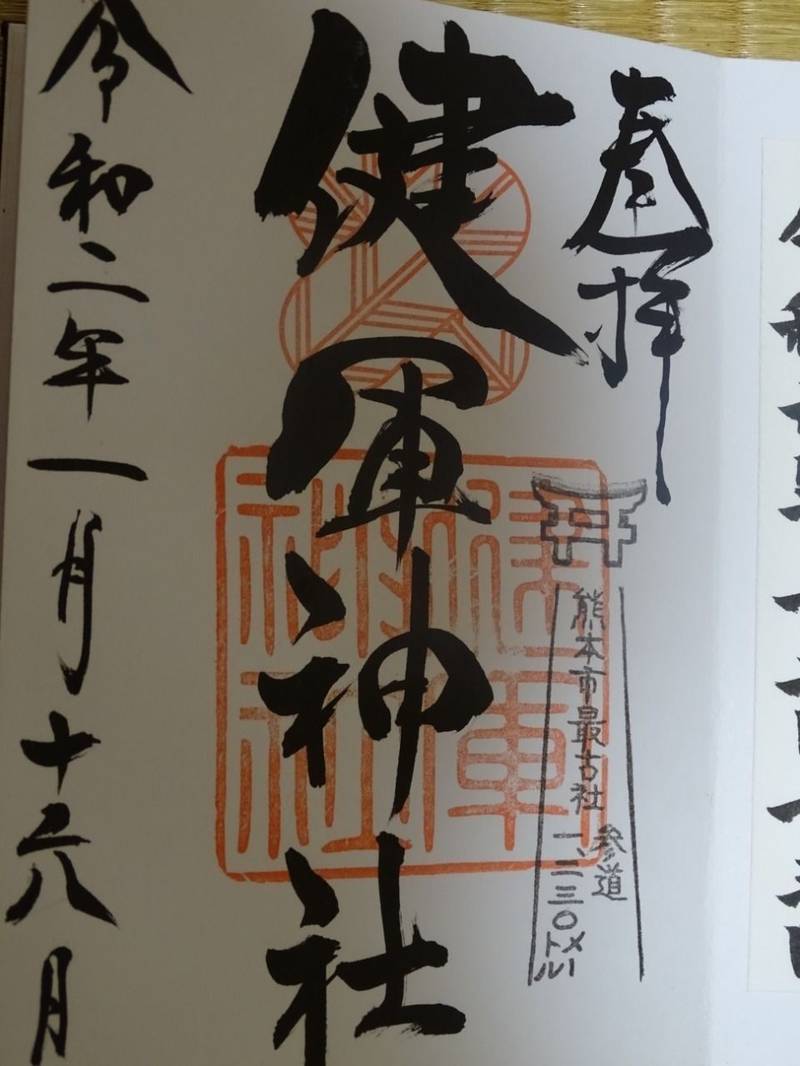 奉拝
熊本市最古社
参道
一、二三〇メートル
健軍神社
健軍神社
令和二年一月十六日